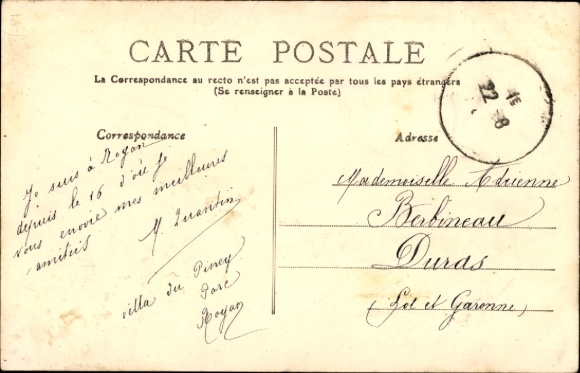 CARTE POSTALE
La Correspondance au recto n'est pas acceptée par tous les pays étrangers
(Se renseigner à la Poste)
Correspondance
Je suis à Royan
depuis le 16 d'où je
vous envoie mes meilleures
amitiés
M. Quantin
villa du Piney
Parc
Royan
Adresse
Mademoiselle Adrienne
Berbineau
Duras
(Lot et Garonne)
22 - 8